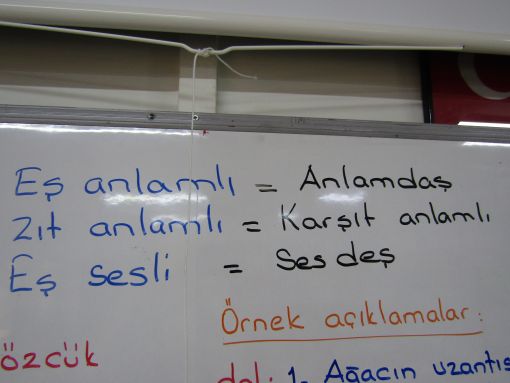 Eş anlamlı = Anlamdaş
Zıt anlamlı = Karşıt anlamlı
Eş sesli = Sesdeş
Örnek açıklamalar:
özcük
dal: 1. Ağacın uzantıs